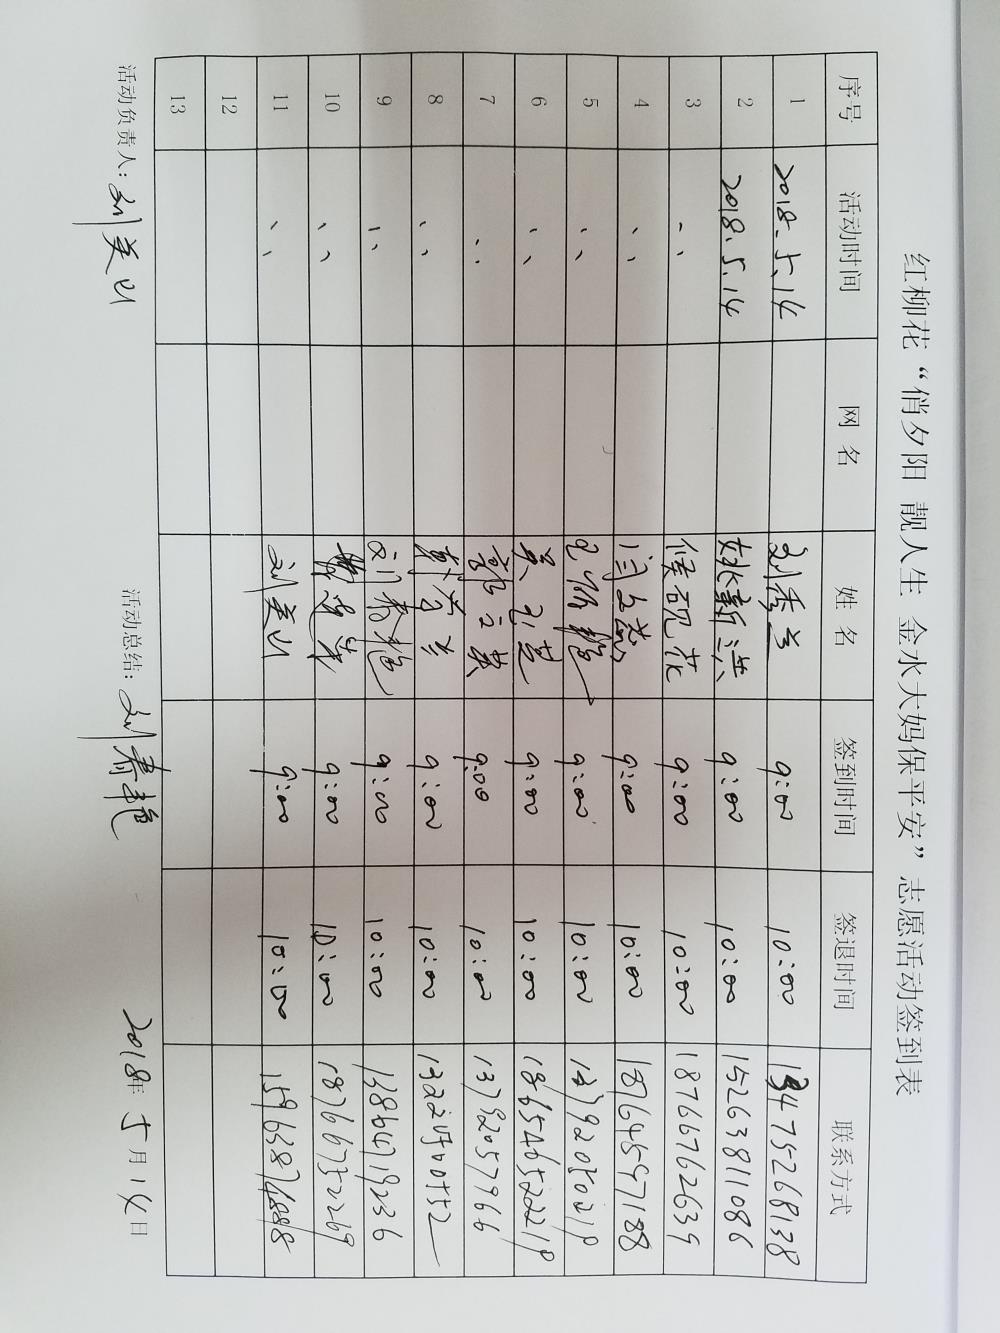 红柳花“俏夕阳 靓人生 金水大妈保平安”志愿活动签到表
序号 活动时间 网 名 姓 名 签到时间 签退时间 联系方式
1 2018.5.14 刘秀兰 9:00 10:00 13475268138
2 2018.5.14 姚新洪 9:00 10:00 15263811086
3 〃 候砚花 9:00 10:00 18766762639
4 〃 9:00 10:00
5 〃 9:00 10:00
6 〃 9:00 10:00
7 〃 郭立英 9:00 10:00 13792057966
8 〃 9:00 10:00
9 〃 刘春艳 9:00 10:00 13864719236
10 〃 9:00 10:00 18766732269
11 〃 刘美山 9:00 10:00
12
13
活动负责人: 刘美山 活动总结: 刘春艳 2018年 5月 14日